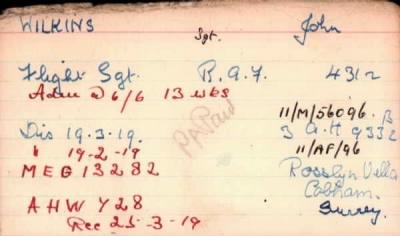 WILKINS Sgt. John
Flight Sgt. R.A.F. 4312
Adm @ 6/6 13 wks
11/M/56096. B
Dis 19.3.19. 3 A.H 9332
" 19-2-19 11/AF/96
PA Paid
MEG 13282 Rosslyn Villa
Cobham.
AHWY28 Surrey.
Rec 25-3-19